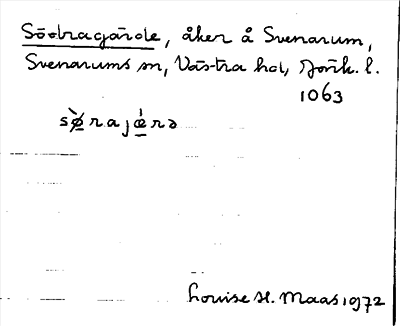 Södragärde, åker å Svenarum,
Svenarums sn, Västra hd, Jönk. l.
1063
sø̀rajæ̀rə
Louise H. Maas 1972